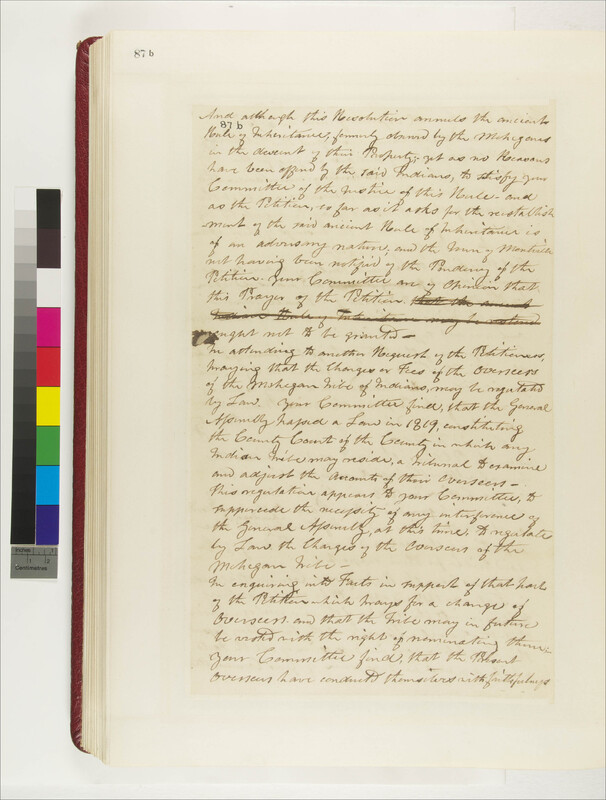 87 b
And although this Resolution annuls the ancient
87 b
Rule of Inheritance, formerly observed by the Mohegans
in the descent of their Property; yet as no Reasons
have been offered by the said Indians, to satisfy your
Committee of the Justice of this Rule - and
as the Petition, so far as it asks for the reestablish
ment of the said ancient Rule of Inheritance is
of an adversary nature, and the Town of Montville
not having been notified of the Pendency of the
Petition. Your Committee are of Opinion that
this Prayer of the Petition that the ancient
Indian Rule of Inheritance may be restored
ought not to be granted -
In attending to another Request of the Petitioners,
praying that the Charges or Fees of the Overseers
of the Mohegan Tribe of Indians, may be regulated
by Law. Your Committee find, that the General
Assembly passed a Law in 1819, constituting
the County Court of the County in which any
Indian Tribe may reside, a Tribunal to examine
and adjust the Accounts of their Overseers -
This regulation appears to your Committee, to
suppercede the necessity of any interference of
the General Assembly, at this time, to regulate
by Law the Charges of the Overseers of the
Mohegan Tribe -
In enquiring into Facts in support of that part
of the Petition which prays for a change of
Overseers and that the Tribe may in future
be vested with the right of nominating them;
your Committee find, that the Present
Overseers have conducted themselves with faithfulness
Inches
1
2
Centimetres